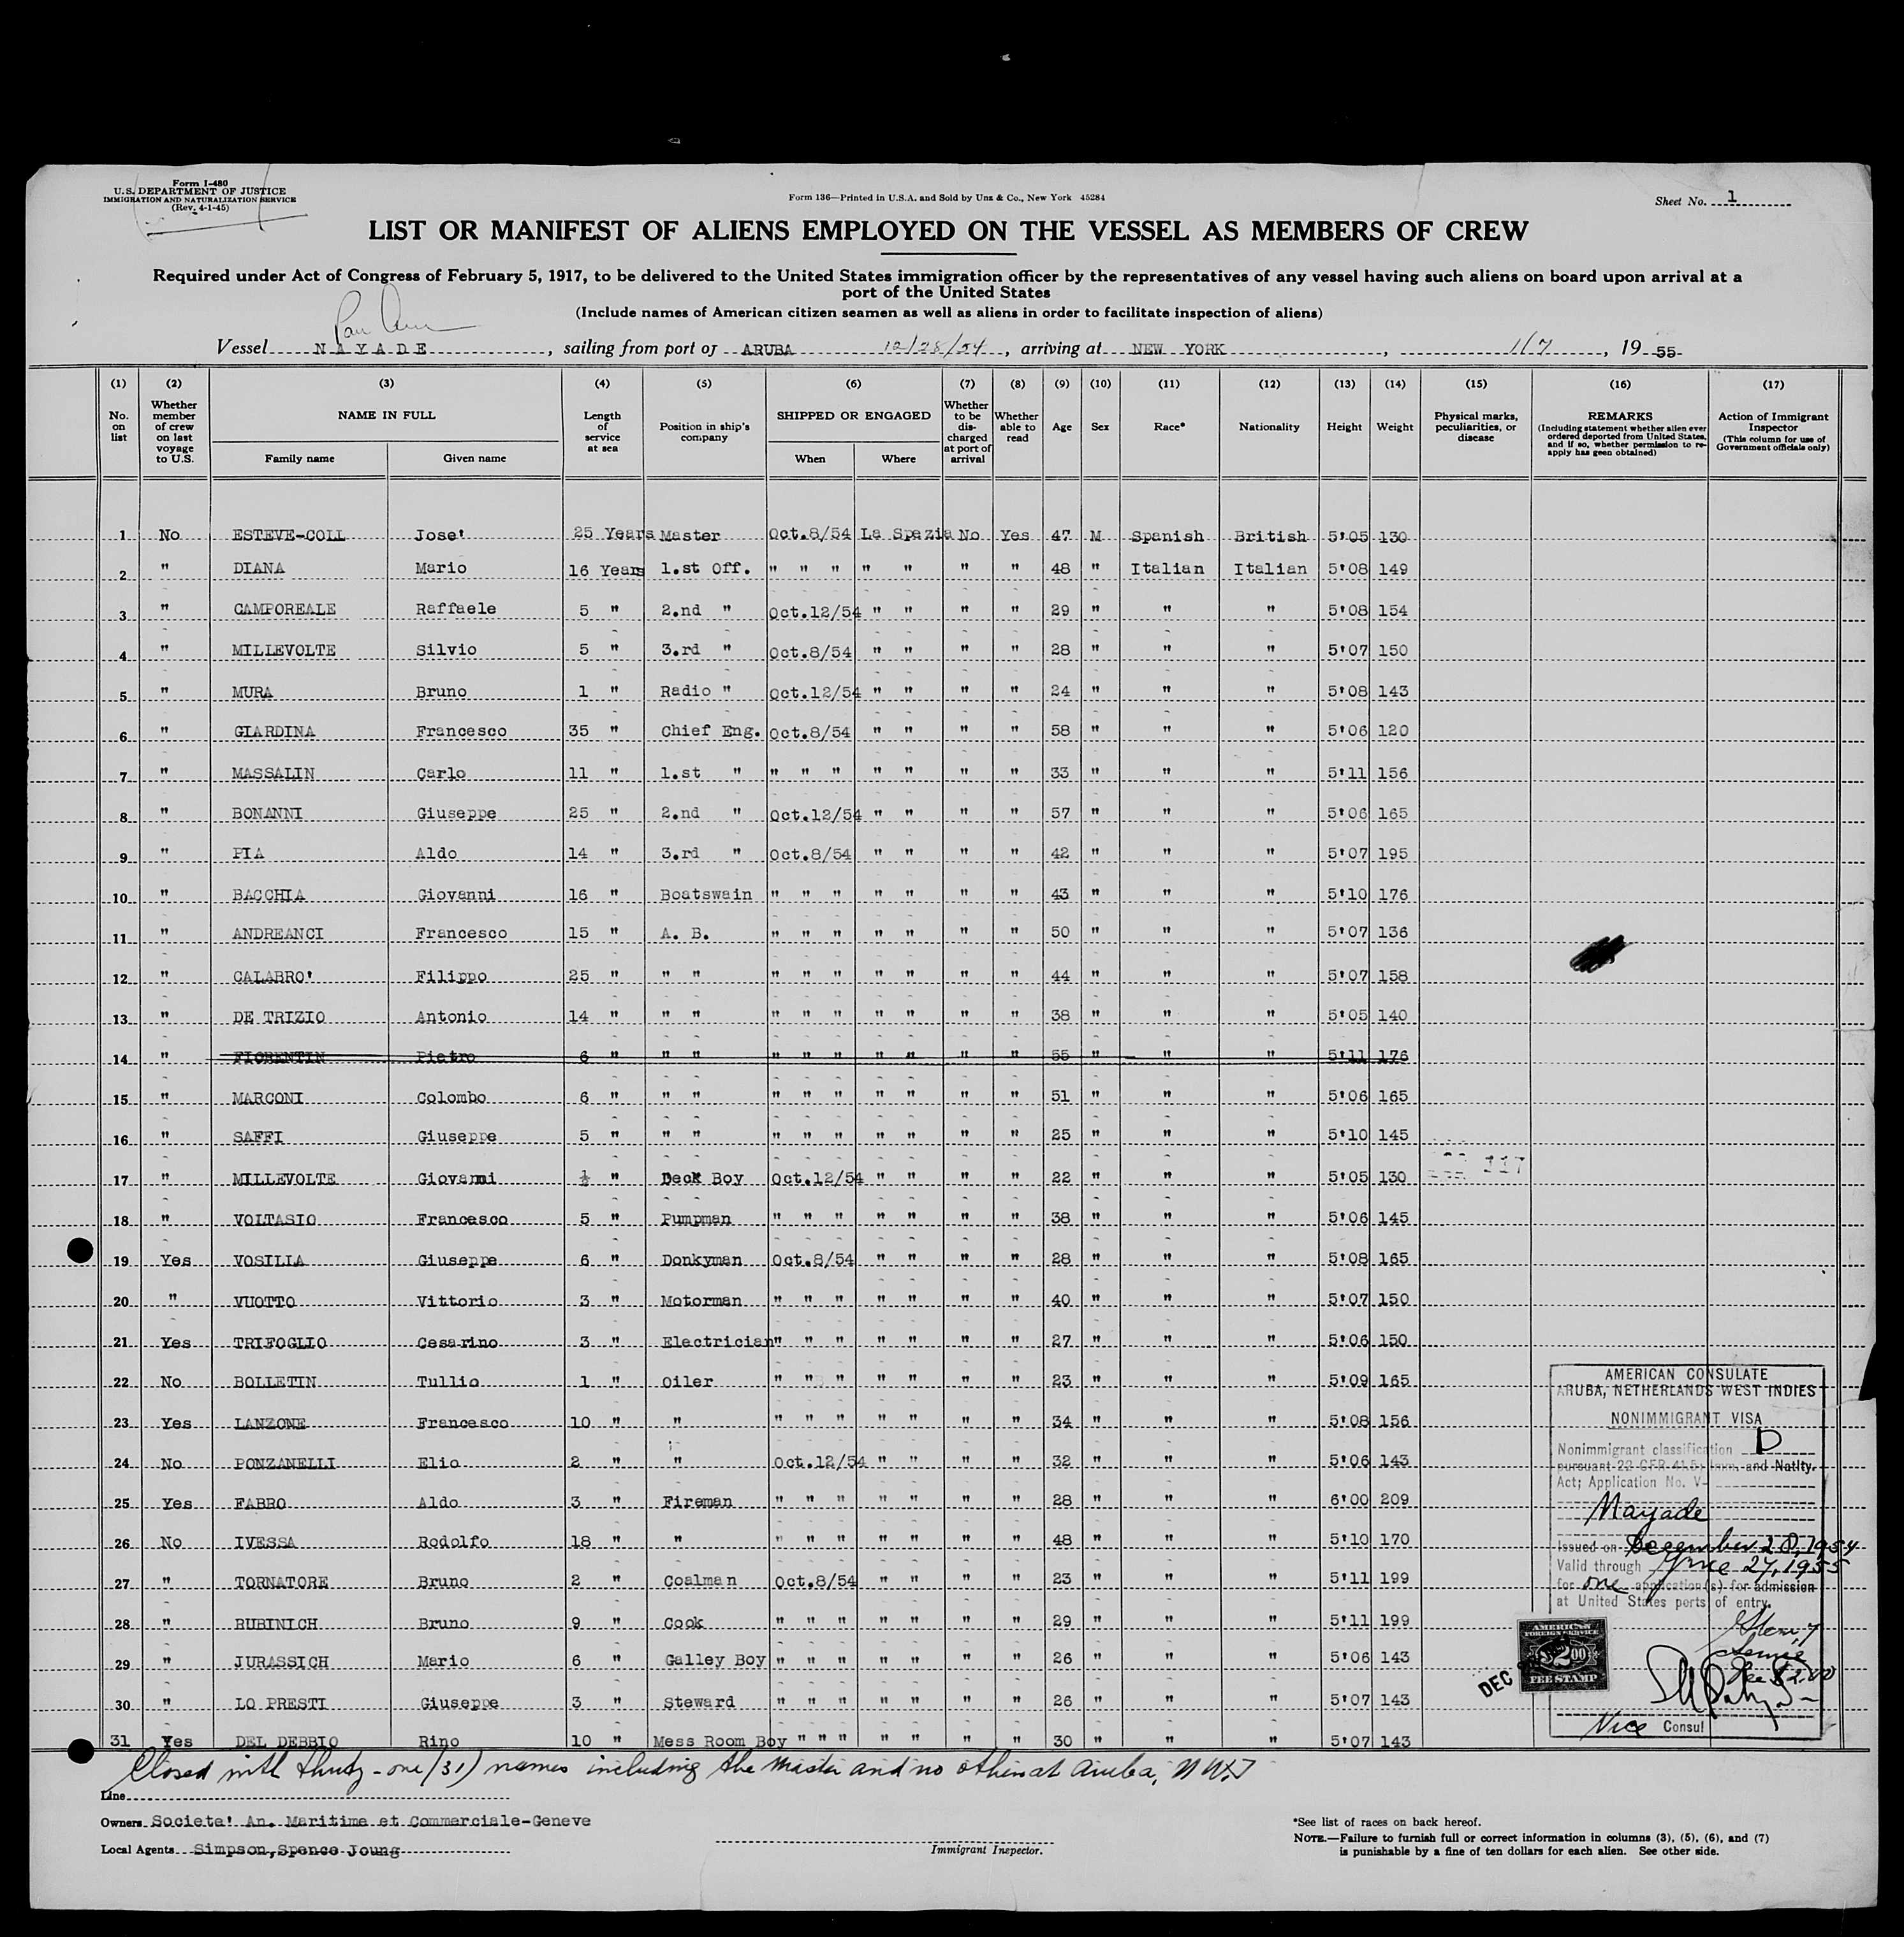 Form I-480
U.S. DEPARTMENT OF JUSTICE
IMMIGRATION AND NATURALIZATION SERVICE
(Rev. 4-1-45)
Form 136—Printed in U.S.A. and Sold by Unz & Co., New York 45284
Sheet No. 1
LIST OR MANIFEST OF ALIENS EMPLOYED ON THE VESSEL AS MEMBERS OF CREW
Required under Act of Congress of February 5, 1917, to be delivered to the United States immigration officer by the representatives of any vessel having such aliens on board upon arrival at a
port of the United States
(Include names of American citizen seamen as well as aliens in order to facilitate inspection of aliens)
Vessel NAYADE, sailing from port of ARUBA 12/28/54, arriving at NEW YORK, 1/7, 1955
(1) (2) (3) (4) (5) (6) (7) (8) (9) (10) (11) (12) (13) (14) (15) (16) (17)
No. on list
Whether member of crew on last voyage to U.S.
NAME IN FULL
Family name
Given name
Length of service at sea
Position in ship's company
SHIPPED OR ENGAGED
When
Where
Whether to be discharged at port of arrival
Whether able to read
Age
Sex
Race*
Nationality
Height
Weight
Physical marks, peculiarities, or disease
REMARKS
(Including statement whether alien ever ordered deported from United States, and if so, whether permission to re-apply has geen obtained)
Action of Immigrant Inspector
(This column for use of Government officials only)
1 No ESTEVE-COLL Jose' 25 Years Master Oct.8/54 La Spezia No Yes 47 M Spanish British 5'05 130
2 " DIANA Mario 16 Years 1.st Off. " " " " " " " 48 " Italian Italian 5'08 149
3 " CAMPOREALE Raffaele 5 " 2.nd " Oct.12/54 " " " " 29 " " " 5'08 154
4 " MILLEVOLTE Silvio 5 " 3.rd " Oct.8/54 " " " " 28 " " " 5'07 150
5 " MURA Bruno 1 " Radio " Oct.12/54 " " " " 24 " " " 5'08 143
6 " GIARDINA Francesco 35 " Chief Eng. Oct.8/54 " " " " 58 " " " 5'06 120
7 " MASSALIN Carlo 11 " 1.st " " " " " " " " 33 " " " 5'11 156
8 " BONANNI Giuseppe 25 " 2.nd " Oct.12/54 " " " " 57 " " " 5'06 165
9 " PIA Aldo 14 " 3.rd " Oct.8/54 " " " " 42 " " " 5'07 195
10 " BACCHIA Giovanni 16 " Boatswain " " " " " " " 43 " " " 5'10 176
11 " ANDREANCI Francesco 15 " A. B. " " " " " " " 50 " " " 5'07 136
12 " CALABRO' Filippo 25 " " " " " " " " " " 44 " " " 5'07 158
13 " DE TRIZIO Antonio 14 " " " " " " " " " " 38 " " " 5'05 140
14 " FIORENTIN Pietro 6 " " " " " " " " " " 55 " " " 5'11 176
15 " MARCONI Colombo 6 " " " " " " " " " " 51 " " " 5'06 165
16 " SAFFI Giuseppe 5 " " " " " " " " " " 25 " " " 5'10 145
17 " MILLEVOLTE Giovanni ½ " Deck Boy Oct.12/54 " " " " 22 " " " 5'05 130
18 " VOLTASIO Francesco 5 " Pumpman " " " " " " " 38 " " " 5'06 145
19 Yes VOSILLA Giuseppe 6 " Donkyman Oct.8/54 " " " " 28 " " " 5'08 165
20 " VUOTTO Vittorio 3 " Motorman " " " " " " " 40 " " " 5'07 150
21 Yes TRIFOGLIO Cesarino 3 " Electrician " " " " " " " 27 " " " 5'06 150
22 No BOLLETIN Tullio 1 " Oiler " " " " " " " 23 " " " 5'09 165
23 Yes LANZONE Francesco 10 " " " " " " " " " 34 " " " 5'08 156
24 No PONZANELLI Elio 2 " " Oct.12/54 " " " " 32 " " " 5'06 143
25 Yes FABRO Aldo 3 " Fireman " " " " " " " 28 " " " 6'00 209
26 No IVESSA Rodolfo 18 " " " " " " " " " 48 " " " 5'10 170
27 " TORNATORE Bruno 2 " Coalman Oct.8/54 " " " " 23 " " " 5'11 199
28 " RUBINICH Bruno 9 " Cook " " " " " " " 29 " " " 5'11 199
29 " JURASSICH Mario 6 " Galley Boy " " " " " " " 26 " " " 5'06 143
30 " LO PRESTI Giuseppe 3 " Steward " " " " " " " 26 " " " 5'07 143
31 Yes DEL DEBBIO Rino 10 " Mess Room Boy " " " " " " " 30 " " " 5'07 143
AMERICAN CONSULATE
ARUBA, NETHERLANDS WEST INDIES
NONIMMIGRANT VISA
Nonimmigrant classification D
pursuant 22 CFR 41.5; Imm. and Natlty.
Act; Application No. V-
Nayade
Issued on December 28, 1954
Valid through June 27, 1955
for one application(s) for admission
at United States ports of entry.
Item 7
Fee $2.00
AMERICAN
FOREIGN SERVICE
$2.00
FEE STAMP
DEC
Vice Consul
Closed with thirty-one (31) names including the Master and no others at Aruba, N W I
Line
Owners Societa' An. Maritime et Commerciale-Geneve
Local Agents Simpson,Spence Joung
Immigrant Inspector.
*See list of races on back hereof.
NOTE.—Failure to furnish full or correct information in columns (3), (5), (6), and (7)
is punishable by a fine of ten dollars for each alien. See other side.